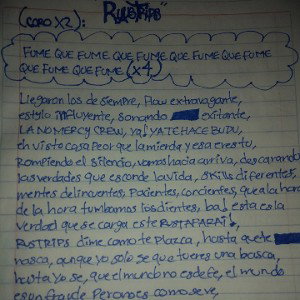 (CORO X2):
RUSTRIPS
FUME QUE FUME QUE FUME QUE FUME QUE FUME
QUE FUME QUE FUME (X4)
Llegaron los de siempre, flow extravagante,
estylo influyente, sonando exitante,
LA NO MERCY CREW, ya! YA TE HACE BUDU,
en vista casa Peor que la mienda y esa eres tu,
Rompiendo el silencio, vamos hacia arriva, descarando
las verdades que esconde la vida, skills diferentes,
mentes delincuentes, Pacientes, concientes, que a la hora
de la hora tumbamos los dientes, esta es la
verdad que se carga este
RUSTRIPS dime como te plazca, hasta que te
nasca, aunque yo solo se que tu eres una basca,
hasta Yo se, que el mundo no es de fe, el mundo